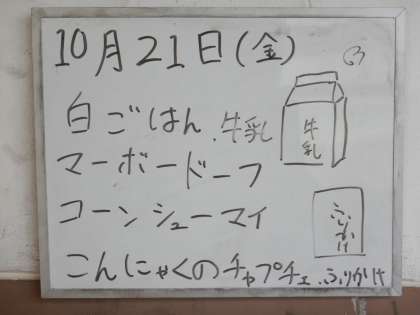 10月21日(金)
白ごはん.牛乳
牛乳
マーボードーフ
コーンシューマイ
ふりかけ
こんにゃくのチャプチェ.ふりかけ